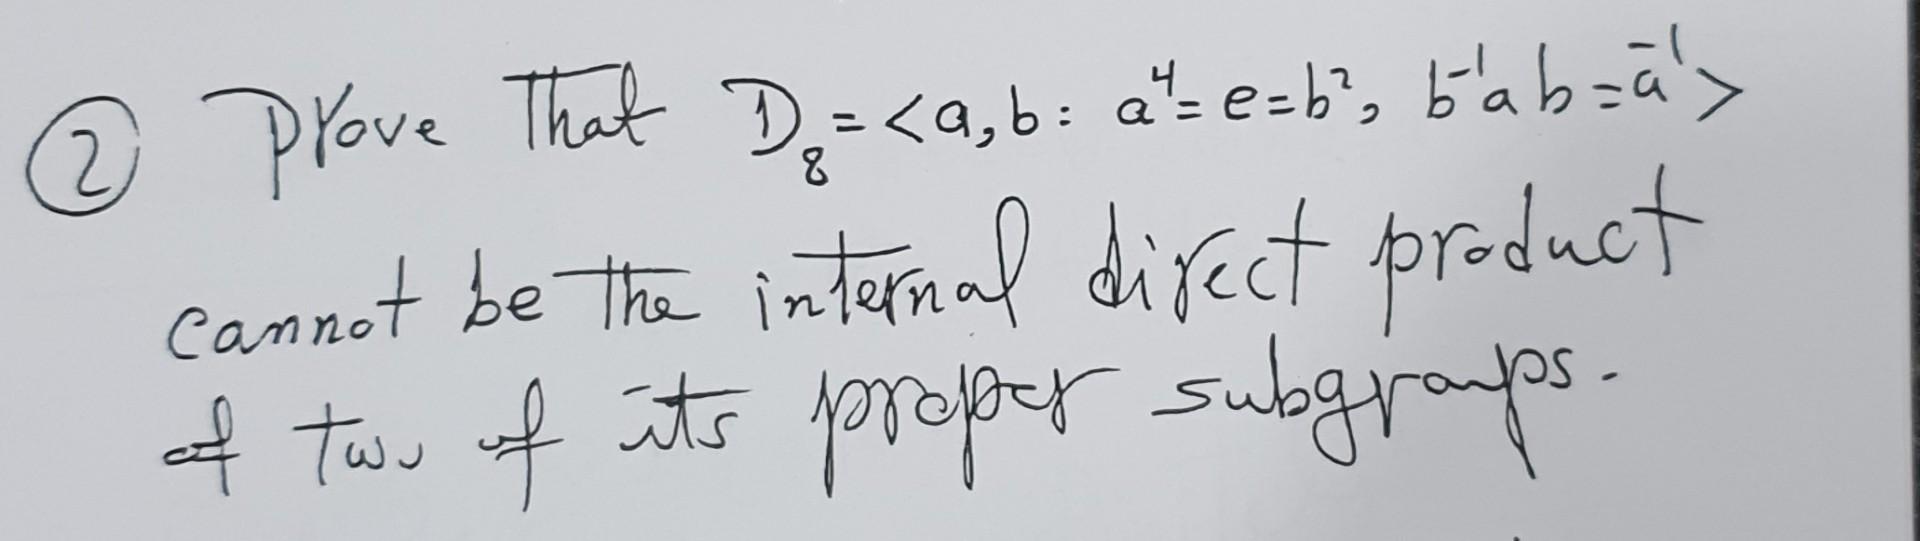 ② Prove That D₈ = <a, b : a⁴ = e = b², b⁻¹ab = a⁻¹>
cannot be the internal direct product
of two of its proper subgroups.